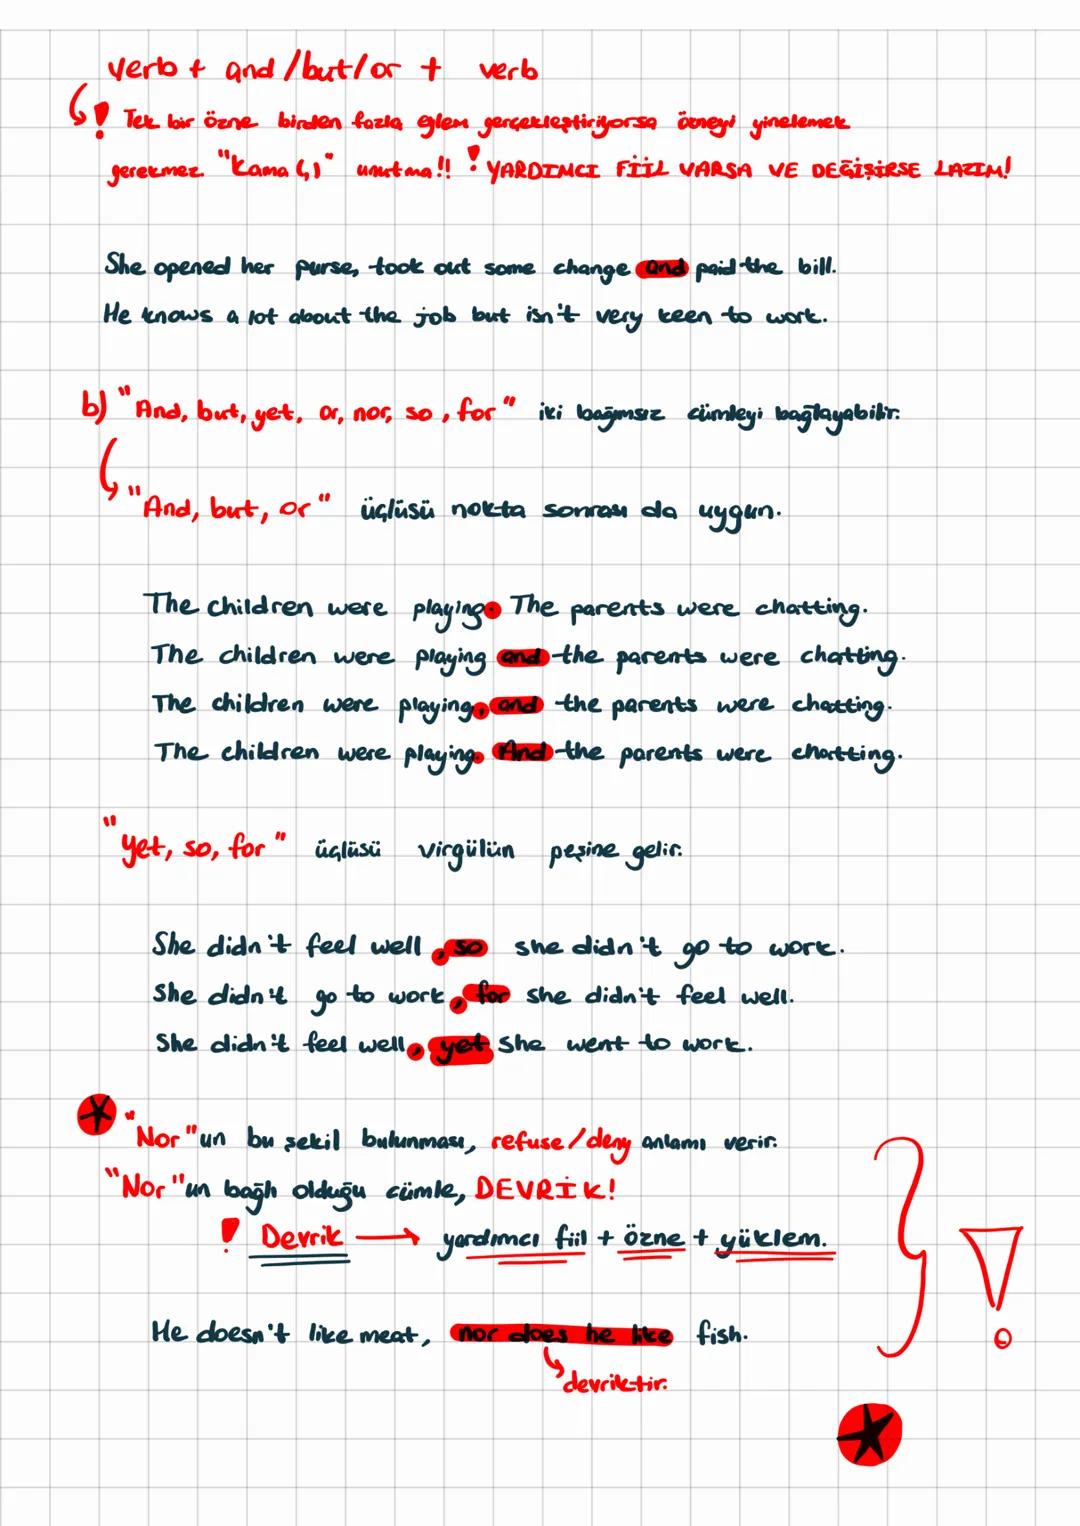 verb + and /but/or + verb
! Tek bir özne birden fazla eylem gerçekleştiriyorsa özneyi yinelemek
gerekmez. "Kama (,)" unutma!! ! YARDIMCI FİİL VARSA VE DEĞİŞİRSE LAZIM!
She opened her purse, took out some change and paid the bill.
He knows a lot about the job but isn't very keen to work.
b) "And, but, yet, or, nor, so, for" iki bağımsız cümleyi bağlayabilir.
"And, but, or" üçlüsü nokta sonrası da uygun.
The children were playing. The parents were chatting.
The children were playing and the parents were chatting.
The children were playing, and the parents were chatting.
The children were playing. And the parents were chatting.
"Yet, so, for" üçlüsü virgülün peşine gelir.
She didn't feel well, so she didn't go to work.
She didn't go to work, for she didn't feel well.
She didn't feel well, yet she went to work.
"Nor"un bu şekil bulunması, refuse/deny anlamı verir.
"Nor"un bağlı olduğu cümle, DEVRİK!
! Devrik → yardımcı fiil + özne + yüklem.
He doesn't like meat, nor does he like fish.
devriktir.